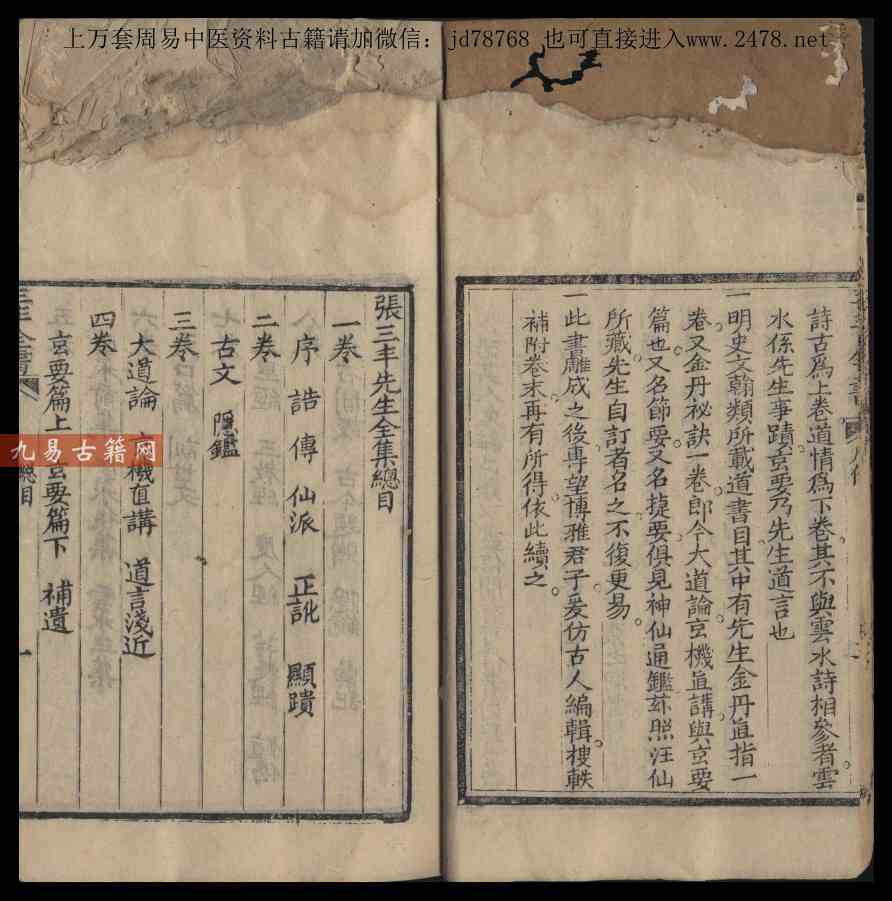 上万套周易中医资料古籍请加微信：jd78768 也可直接进入www.2478.net
詩古爲上卷道情爲下卷其不與雲水詩相參者雲
水係先生事蹟玄要乃先生道言也
一明史文翰類所載道書目其中有先生金丹直指一
卷又金丹祕訣一卷即今大道論玄機直講與玄要
篇也又名節要又名捷要俱見神仙通鑑茲照汪仙
所藏先生自訂者名之不復更易
一此書雕成之後專望博雅君子爰仿古人編輯搜軼
補附卷末再有所得依此續之
張三丰先生全集總目
一卷
序 誥 傳 仙派 正訛 顯蹟
二卷
古文 隱鑑
三卷
大道論 玄機直講 道言淺近
四卷
玄要篇上 玄要篇下 補遺
總目
一
九易古籍网